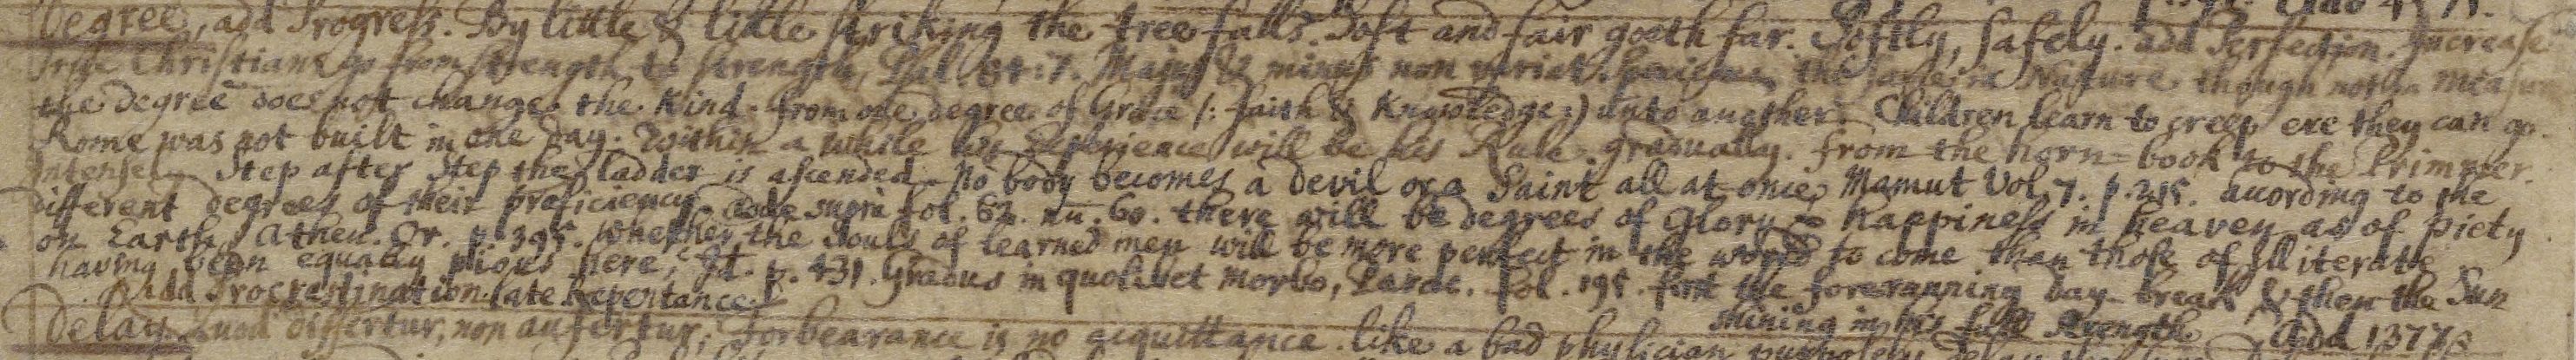 Degree, add Progress. By little & little striking the tree falls. Soft and fair goeth far. Softly, safely. add Perfection. Increase
True Christians go from strength to strength, Psal. 84:7. Majus & minus non variat the same in Nature though not in measure
the degree does not change the Kind. from one degree of Grace (: faith & Knowledge :) unto another. Children learn to creep ere they can go.
Rome was not built in one day. Within a while his Experience will be his Rule. gradually. from the horn=book to the Primmer.
Intensel Step after Step the ladder is ascended. No body becomes a Devil or a Saint all at once, Mamut Vol. 7. p. 215. according to the
different degrees of their proficiency. vide supra fol. 62. nu. 60. there will be degrees of Glory & happiness in heaven as of piety
on Earth, Athen. Or. p. 395. Whether the Souls of learned men will be more perfect in the world to come than those of Illiterate
having been equally pious here, Id. p. 431. Gradus in quolibet morbo, Pards. fol. 195. first the forerunning day-break & then the Sun
shining in his full strength. Add 1377.
add Procrastination. late Repentance.
Delay. Quod differtur, non aufertur; Forbearance is no acquittance. like a bad physician